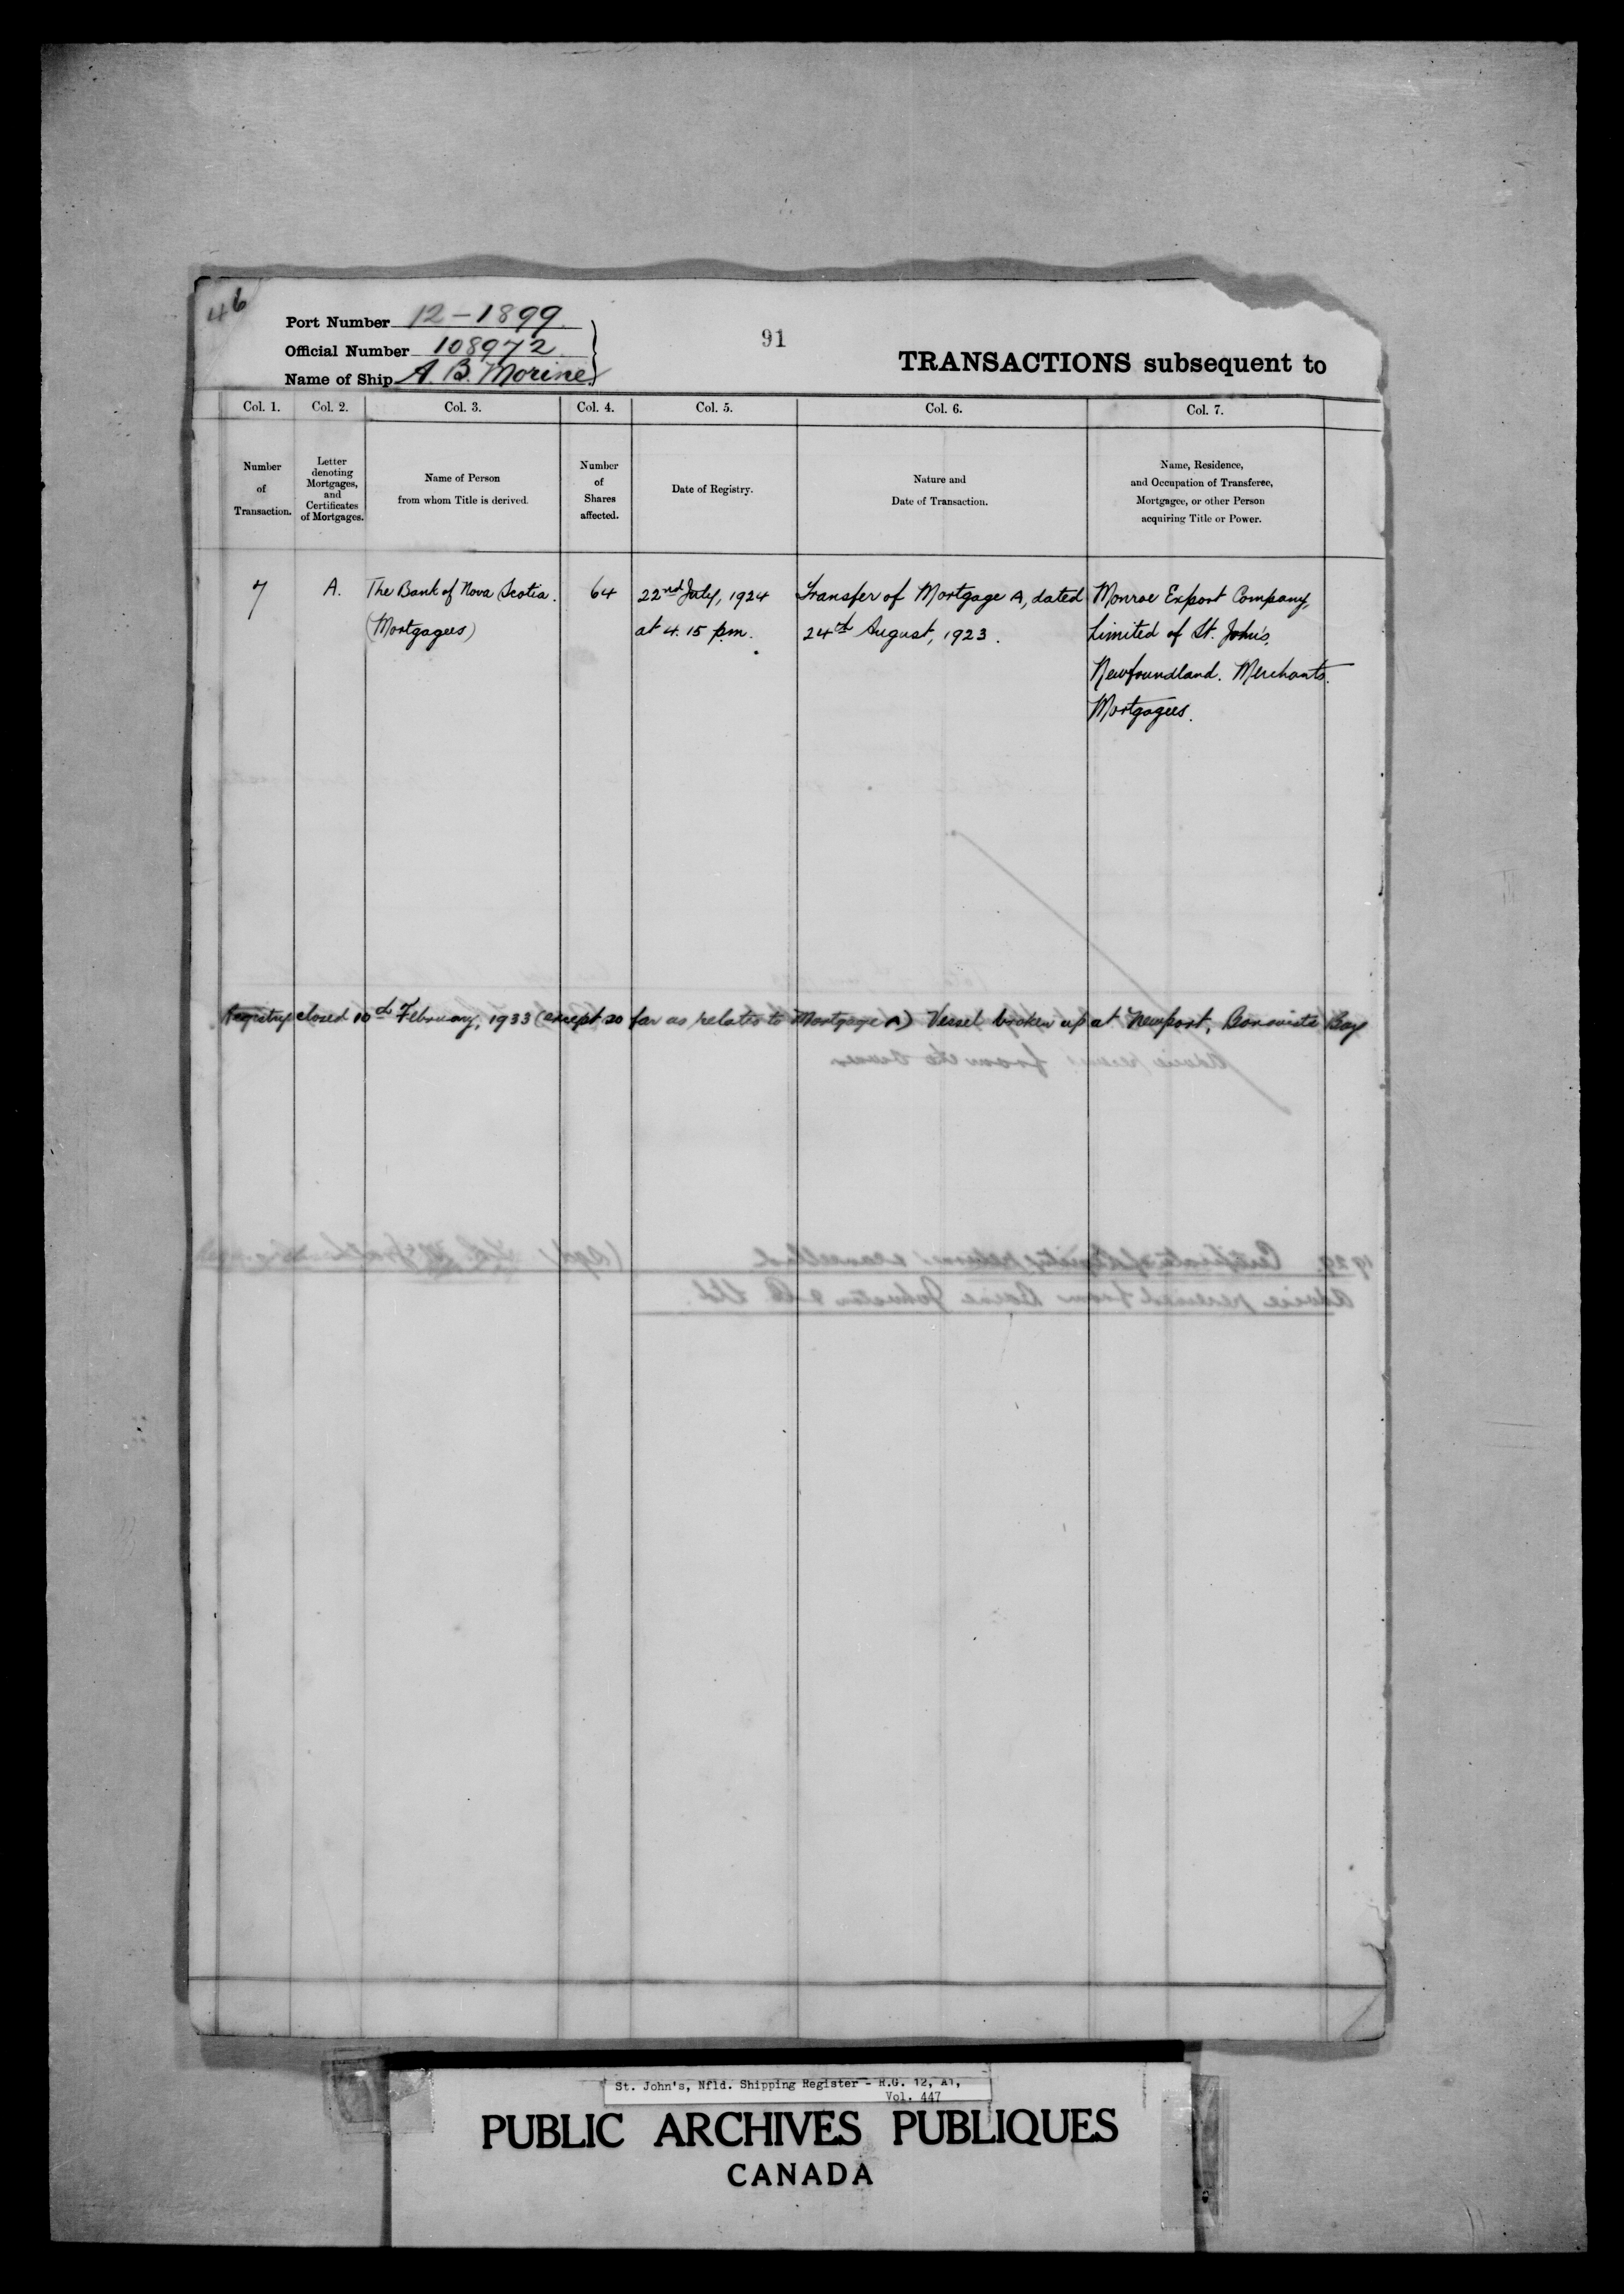 46
Port Number 12-1899
Official Number 108972
Name of Ship A. B. Morine
91
TRANSACTIONS subsequent to
Col. 1. Col. 2. Col. 3. Col. 4. Col. 5. Col. 6. Col. 7.
Number
of
Transaction.
Letter
denoting
Mortgages,
and
Certificates
of Mortgages.
Name of Person
from whom Title is derived.
Number
of
Shares
affected.
Date of Registry.
Nature and
Date of Transaction.
Name, Residence,
and Occupation of Transferee,
Mortgagee, or other Person
acquiring Title or Power.
7
A.
The Bank of Nova Scotia.
(Mortgagees)
64
22nd July, 1924
at 4.15 p.m.
Transfer of Mortgage A, dated
24th August, 1923.
Monroe Export Company,
Limited of St. John's,
Newfoundland. Merchants.
Mortgagees.
Registry closed 10th February, 1933 (except so far as relates to Mortgage A) Vessel broken up at Newport, Bonavista Bay
St. John's, Nfld. Shipping Register - R.G. 12, A1,
Vol. 447
PUBLIC ARCHIVES PUBLIQUES
CANADA